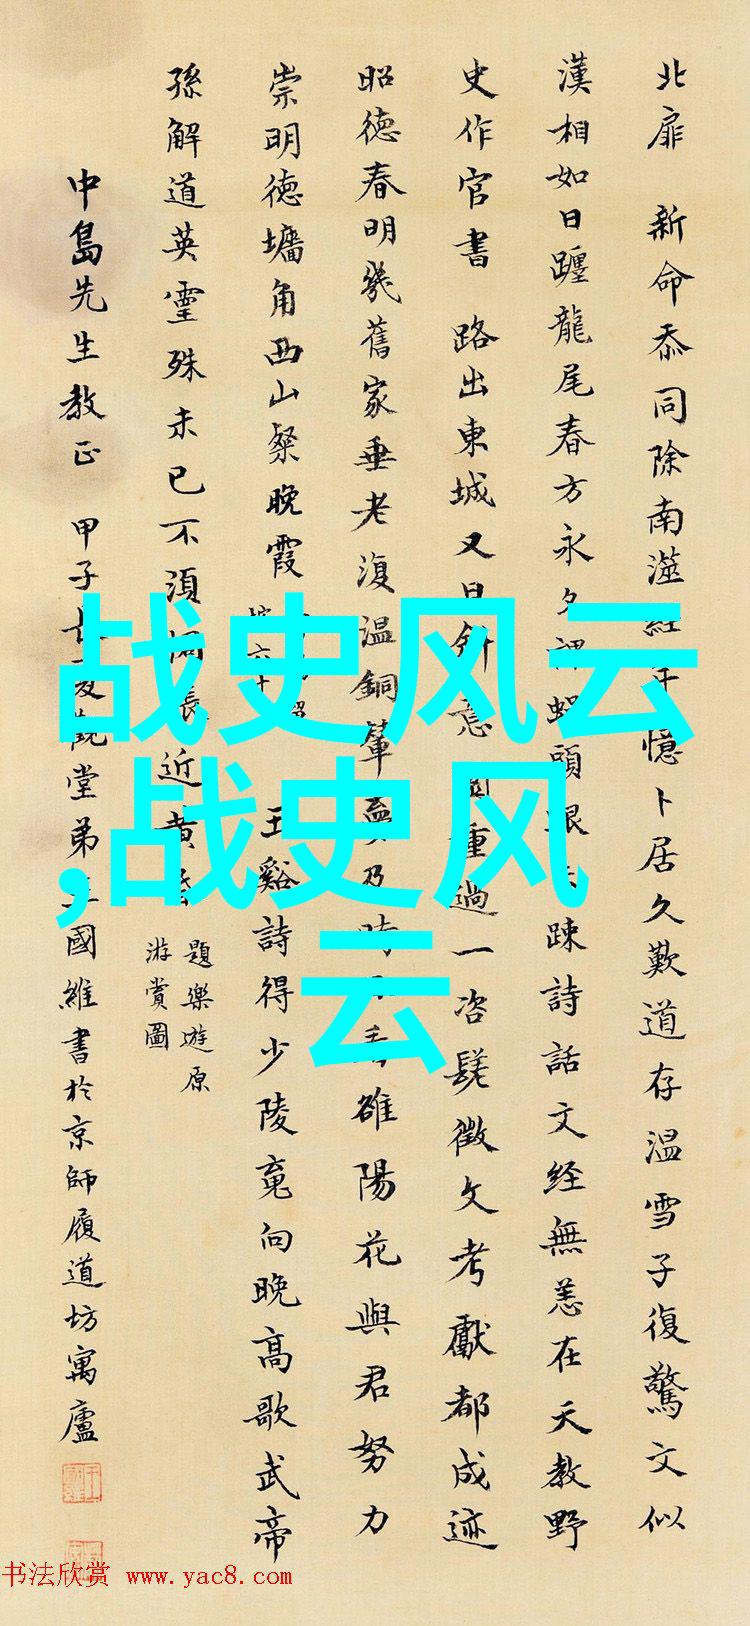 北扉 新命忝同除南澨
憶卜居久歎道存温雪子復驚文似
漢相如日躔龍尾春方永夕
蝸頭
疎詩話文經無恙在天教野
史作官書 路出東城又日斜意
重過一咨嗟徵文考獻都成迹
昭德春明幾舊家垂老復温銅輦
乃
雒陽花與君努力
崇明德墉角西山粲晚霞
玉谿詩得少陵竟向晚高歌武帝
孫解道英靈殊未已不須
近黄昏
題樂遊原
游賞圖
中島先生教正 甲子
觀堂弟王國維書於京師履道坊寓廬
战史风云
,战史风
云
书法欣赏 www.yac8.com